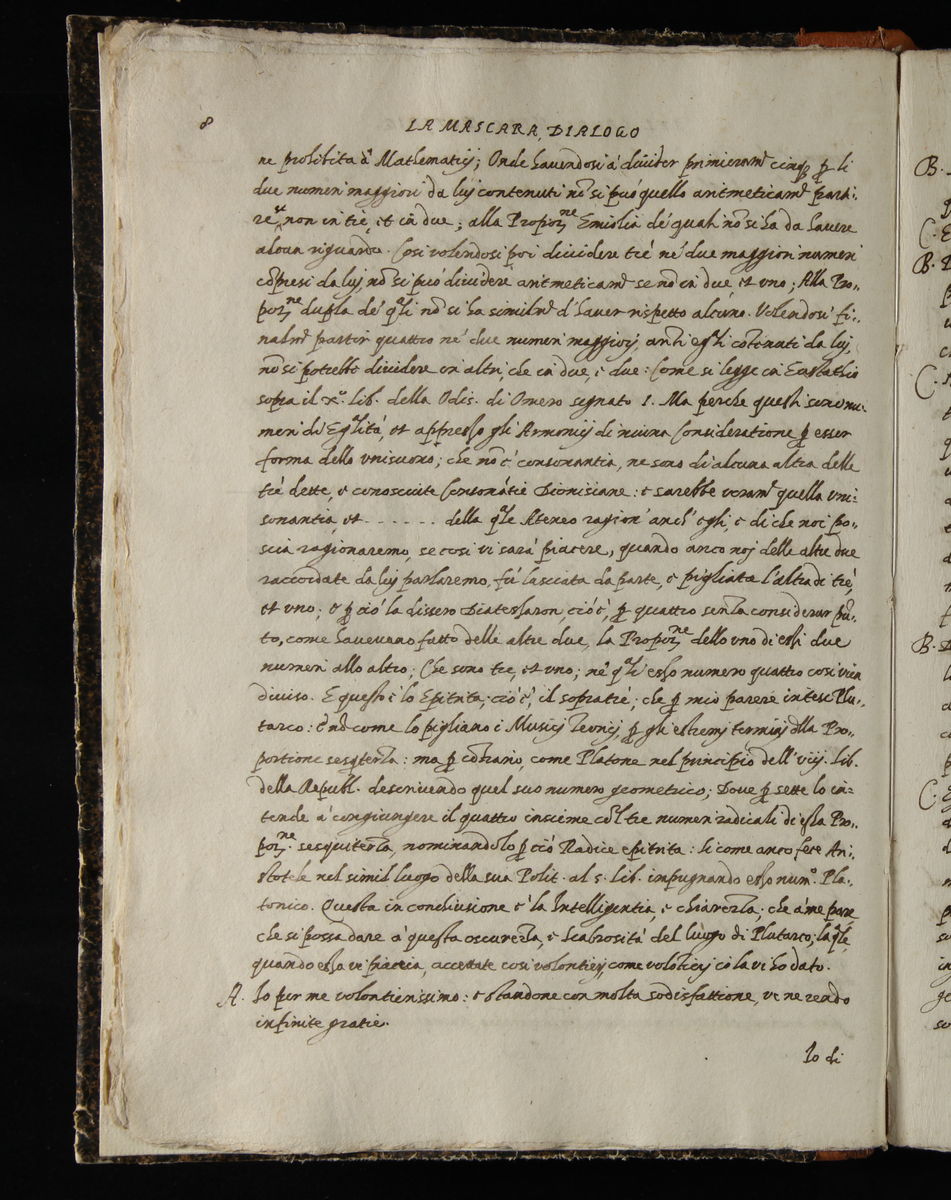 8
LA MASCARA, DIALOGO
ne prohibita à Mathematicj; Onde havendosi à divider primieram.te cinq; p li
due numeri maggiori da luj contenuti nõ si può quello aritmeticam.te parti-
re, non in tre, et in due; alla Propor.ne Emiolia de' quali nõ si ha da havere
alcun riguardo. Così volendosi poi dividere tré né due maggiori numeri
cõpresi da luj, nõ si può dividere aritmeticam.te se nõ in due, et uno; Alla Pro-
por.ne dupla de' q.li nõ si ha similm.te d'haver rispetto alcuno. Volendosi fi-
nalm.te partir quattro né due numeri maggiorj, anch'essi cõtenuti da luj,
nõ si potrebbe dividere in altri, che in due, e due: Come si legge in Eustathio
sopra il x.o lib. della Odis. di Omero segnato 1. Ma perche questi sono nu-
meri di Eq.lità, et appresso gli Armonicj di niuna Consideratione p esser
forma dello unisuono; che nõ è consonantia, ne sono di alcuna altra delle
tré dette, e conosciute Consonãtie Dionisiane: e sarebbe veram.te quella uni-
sonantia, et . . . . . . . della q.le Ateneo ragion' anch' egli, e di che noi po-
scia ragionaremo, se così vi sarà piacere, quando anco noj delle altre due
raccordate da luj parlaremo, fù lasciata da parte, e pigliata l'altra di tré,
et uno; e p ciò la dissero Diatessaron ciò è, p quattro senza considerar pũ-
to, come havevano fatto delle altre due, la Propor.ne dello uno di essi due
numeri allo altro; Che sono tre, et uno; né q.li esso numero quattro così vien
diviso. E questo è lo Epitrita; ciò è, il sopratré; che p mio parere intese Plu-
tarco: E nõ come lo pigliano i Musicj Teoricj, p gli estremj terminj dlla Pro-
portione sesq.terza: ma p cõtrario, come Platone nel principio dell' viij. lib.
della Republ. descrivendo quel suo numero geometrico; Dove p sette lo in-
tende à congiungere il quattro insieme cõl tre numeri radicali di essa Pro-
por.ne sesquiterza, nominandolo p ciò Radice epitrita: si come anco fece Ari-
stotele nel simil luogo della sua Polit. al 5. lib. impugnando esso num.o Pla-
tonico. Questa in conclusione è la Intelligentia, e chiarezza; che à me pare,
che si possa dare à questa oscurezza, e scabrosità del luogo di Plutarco; la q.le,
quando essa vi piaccia, accettate così volontierj, come volõtierj io la vi ho dato.
A. Io per me volontierissimo: e standone con molta sodisfattione, ve ne rendo
infinite gratie.
Io di